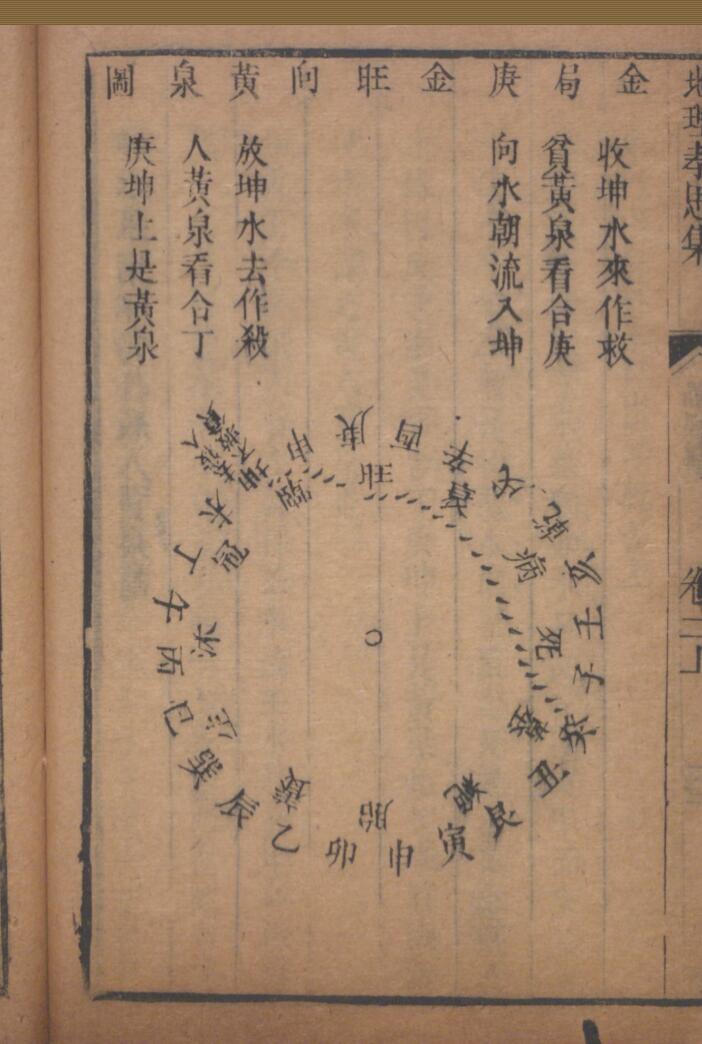 金局庚金旺向黃泉圖
收坤水來作救
貧黃泉看合庚
向水朝流入坤
放坤水去作殺
人黃泉看合丁
庚坤上是黃泉
地理孝思集
卷二
庚
酉
辛
戌
乾
亥
壬
子
癸
丑
艮
寅
甲
卯
乙
辰
巽
巳
丙
午
丁
未
坤
申
旺
衰
病
死
墓
絕
胎
養
生
沐
冠
臨